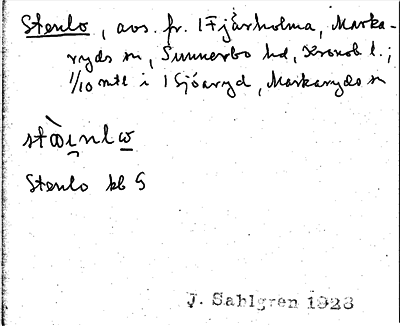 Stenlo, avs. fr. 1 Fjärholma, Marka-
ryds sn, Sunnerbo hd, Kronob l.;
1/10 mtl i 1 Sjöaryd, Markaryds sn
Stenlo kb G
J. Sahlgren 1928